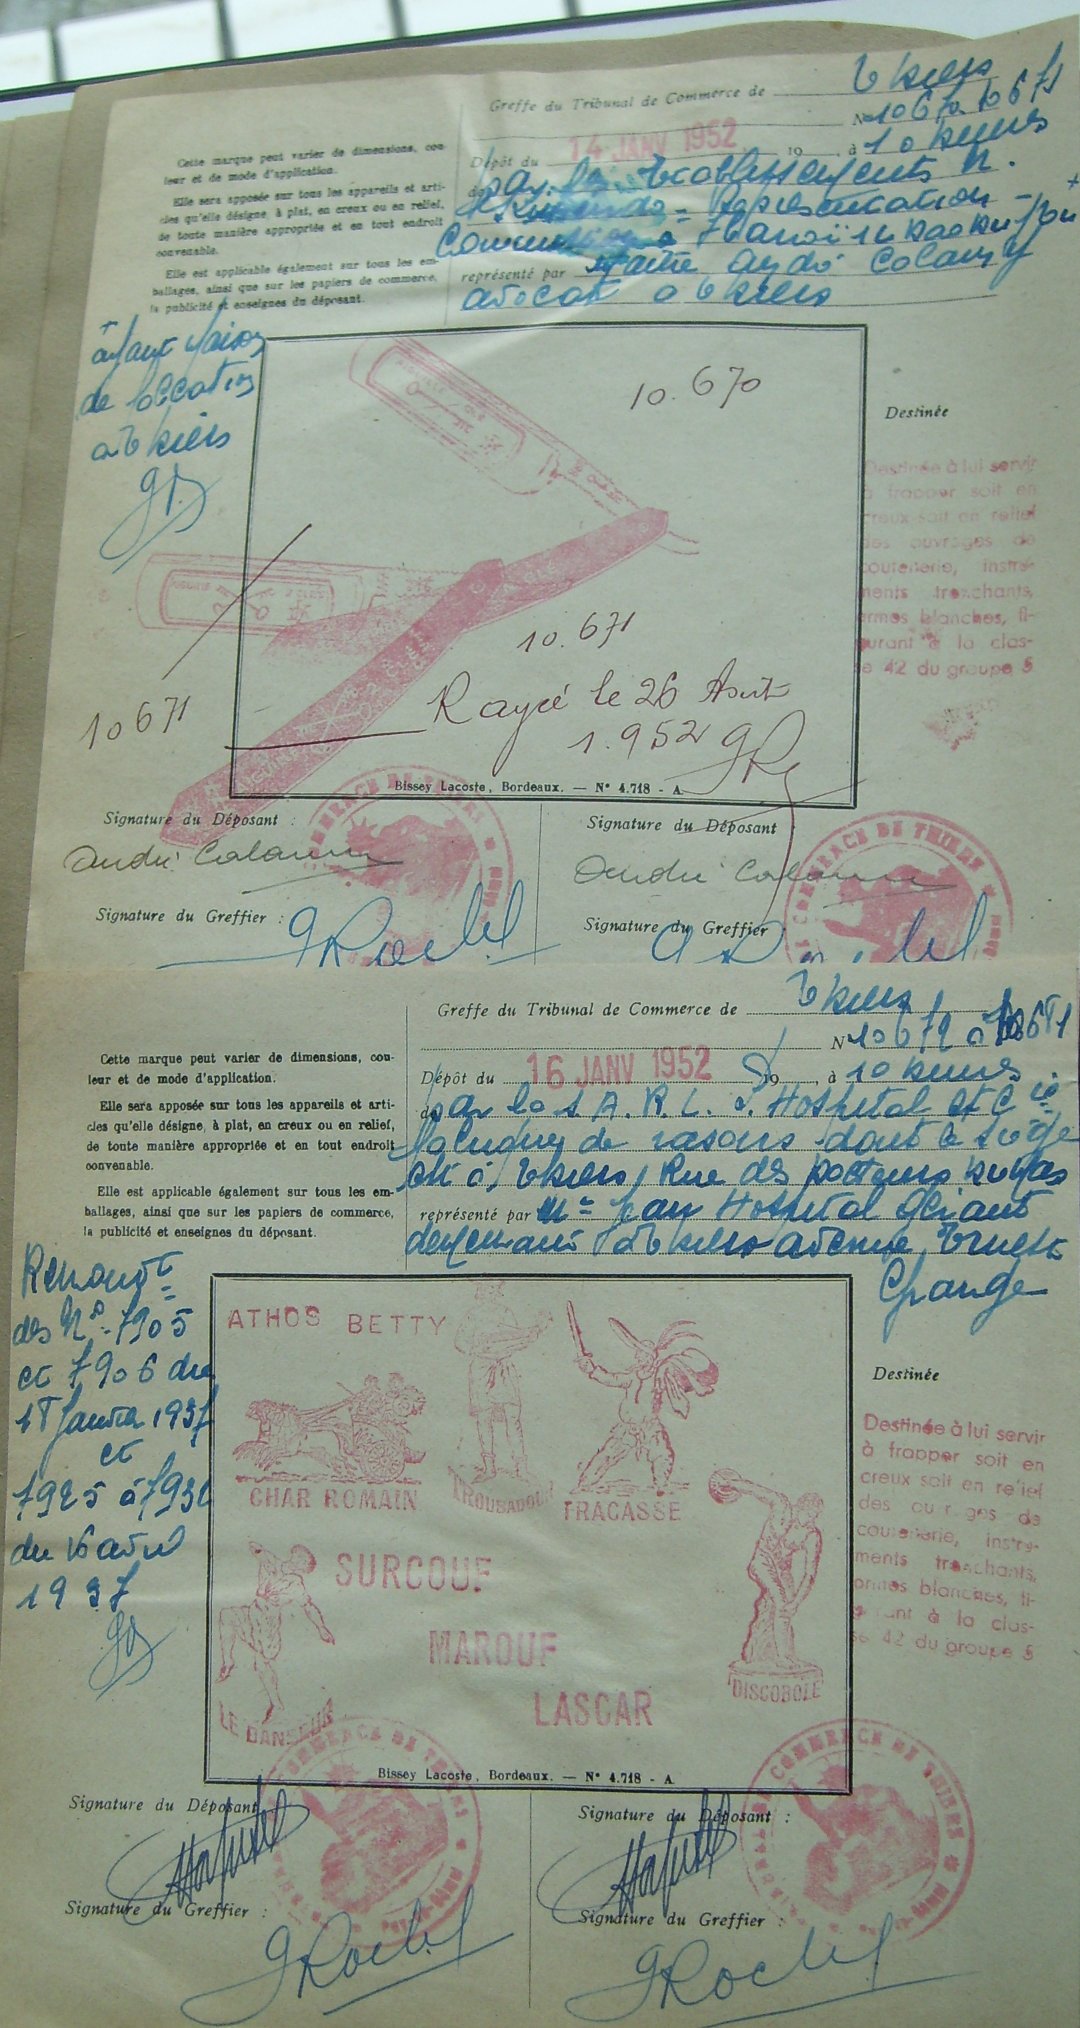 Greffe du Tribunal de Commerce de Thiers
N° 10670-10671
Dépôt du 14 JANV 1952 19 , à 10 heures
par les Etablissements
Représentation -
à Hanoï
représenté par Maître André Colany
avocat à Thiers
Cette marque peut varier de dimensions, cou-
leur et de mode d'application.
Elle sera apposée sur tous les appareils et arti-
cles qu'elle désigne, à plat, en creux ou en relief,
de toute manière appropriée et en tout endroit
convenable.
Elle est applicable également sur tous les em-
ballages, ainsi que sur les papiers de commerce,
la publicité et enseignes du déposant.
ayant
de location
à Thiers
10.670
10.671
10671
Rayé le 26 Août
1.952
Bissey Lacoste, Bordeaux. — N° 4.718 - A
Destinée
Destinée à lui servir
à frapper soit en
creux soit en relief
des ouvrages de
coutellerie, instru-
ments tranchants,
armes blanches, fi-
gurant à la clas-
se 42 du groupe 5
Signature du Déposant :
Signature du Déposant :
André
André
COMMERCE DE THIERS
COMMERCE DE THIERS
Signature du Greffier :
Signature du Greffier :
Greffe du Tribunal de Commerce de Thiers
N° 10672 à 10681
Dépôt du 16 JANV 1952 19 , à 10 heures
par la S.A.R.L. J. Hospital et Cie
fabrique de rasoirs dont le siège
est à Thiers, Rue des Docteurs Dumas
représenté par Mr Jean Hospital Gérant
demeurant à Thiers avenue
Cette marque peut varier de dimensions, cou-
leur et de mode d'application.
Elle sera apposée sur tous les appareils et arti-
cles qu'elle désigne, à plat, en creux ou en relief,
de toute manière appropriée et en tout endroit
convenable.
Elle est applicable également sur tous les em-
ballages, ainsi que sur les papiers de commerce,
la publicité et enseignes du déposant.
Renouvt
des Nos 7905
et 7906 du
18 Janvier 1937
et
7925 à 7932
du 16 avril
1937
ATHOS BETTY
CHAR ROMAIN
TROUBADOUR
FRACASSE
SURCOUF
MAROUF
LASCAR
LE DANSEUR
DISCOBOLE
Bissey Lacoste, Bordeaux. — N° 4.718 - A
Destinée
Destinée à lui servir
à frapper soit en
creux soit en relief
des ouvrages de
coutellerie, instru-
ments tranchants,
armes blanches, fi-
gurant à la clas-
se 42 du groupe 5
COMMERCE DE THIERS
COMMERCE DE THIERS
Signature du Déposant :
Signature du Déposant :
Signature du Greffier :
Signature du Greffier :